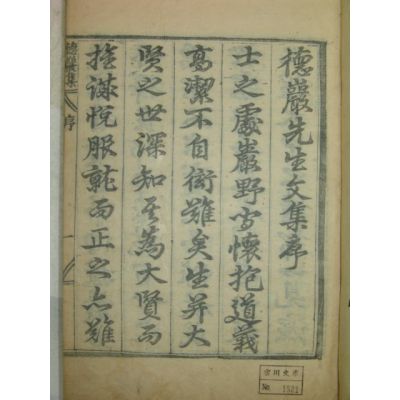 德巖先生文集序
士之處巖野懷抱道義
高潔不自衒難矣生并大
賢之世深知其為大賢而
悅服就而正之亦難
德巖集 序 一
No. 1521